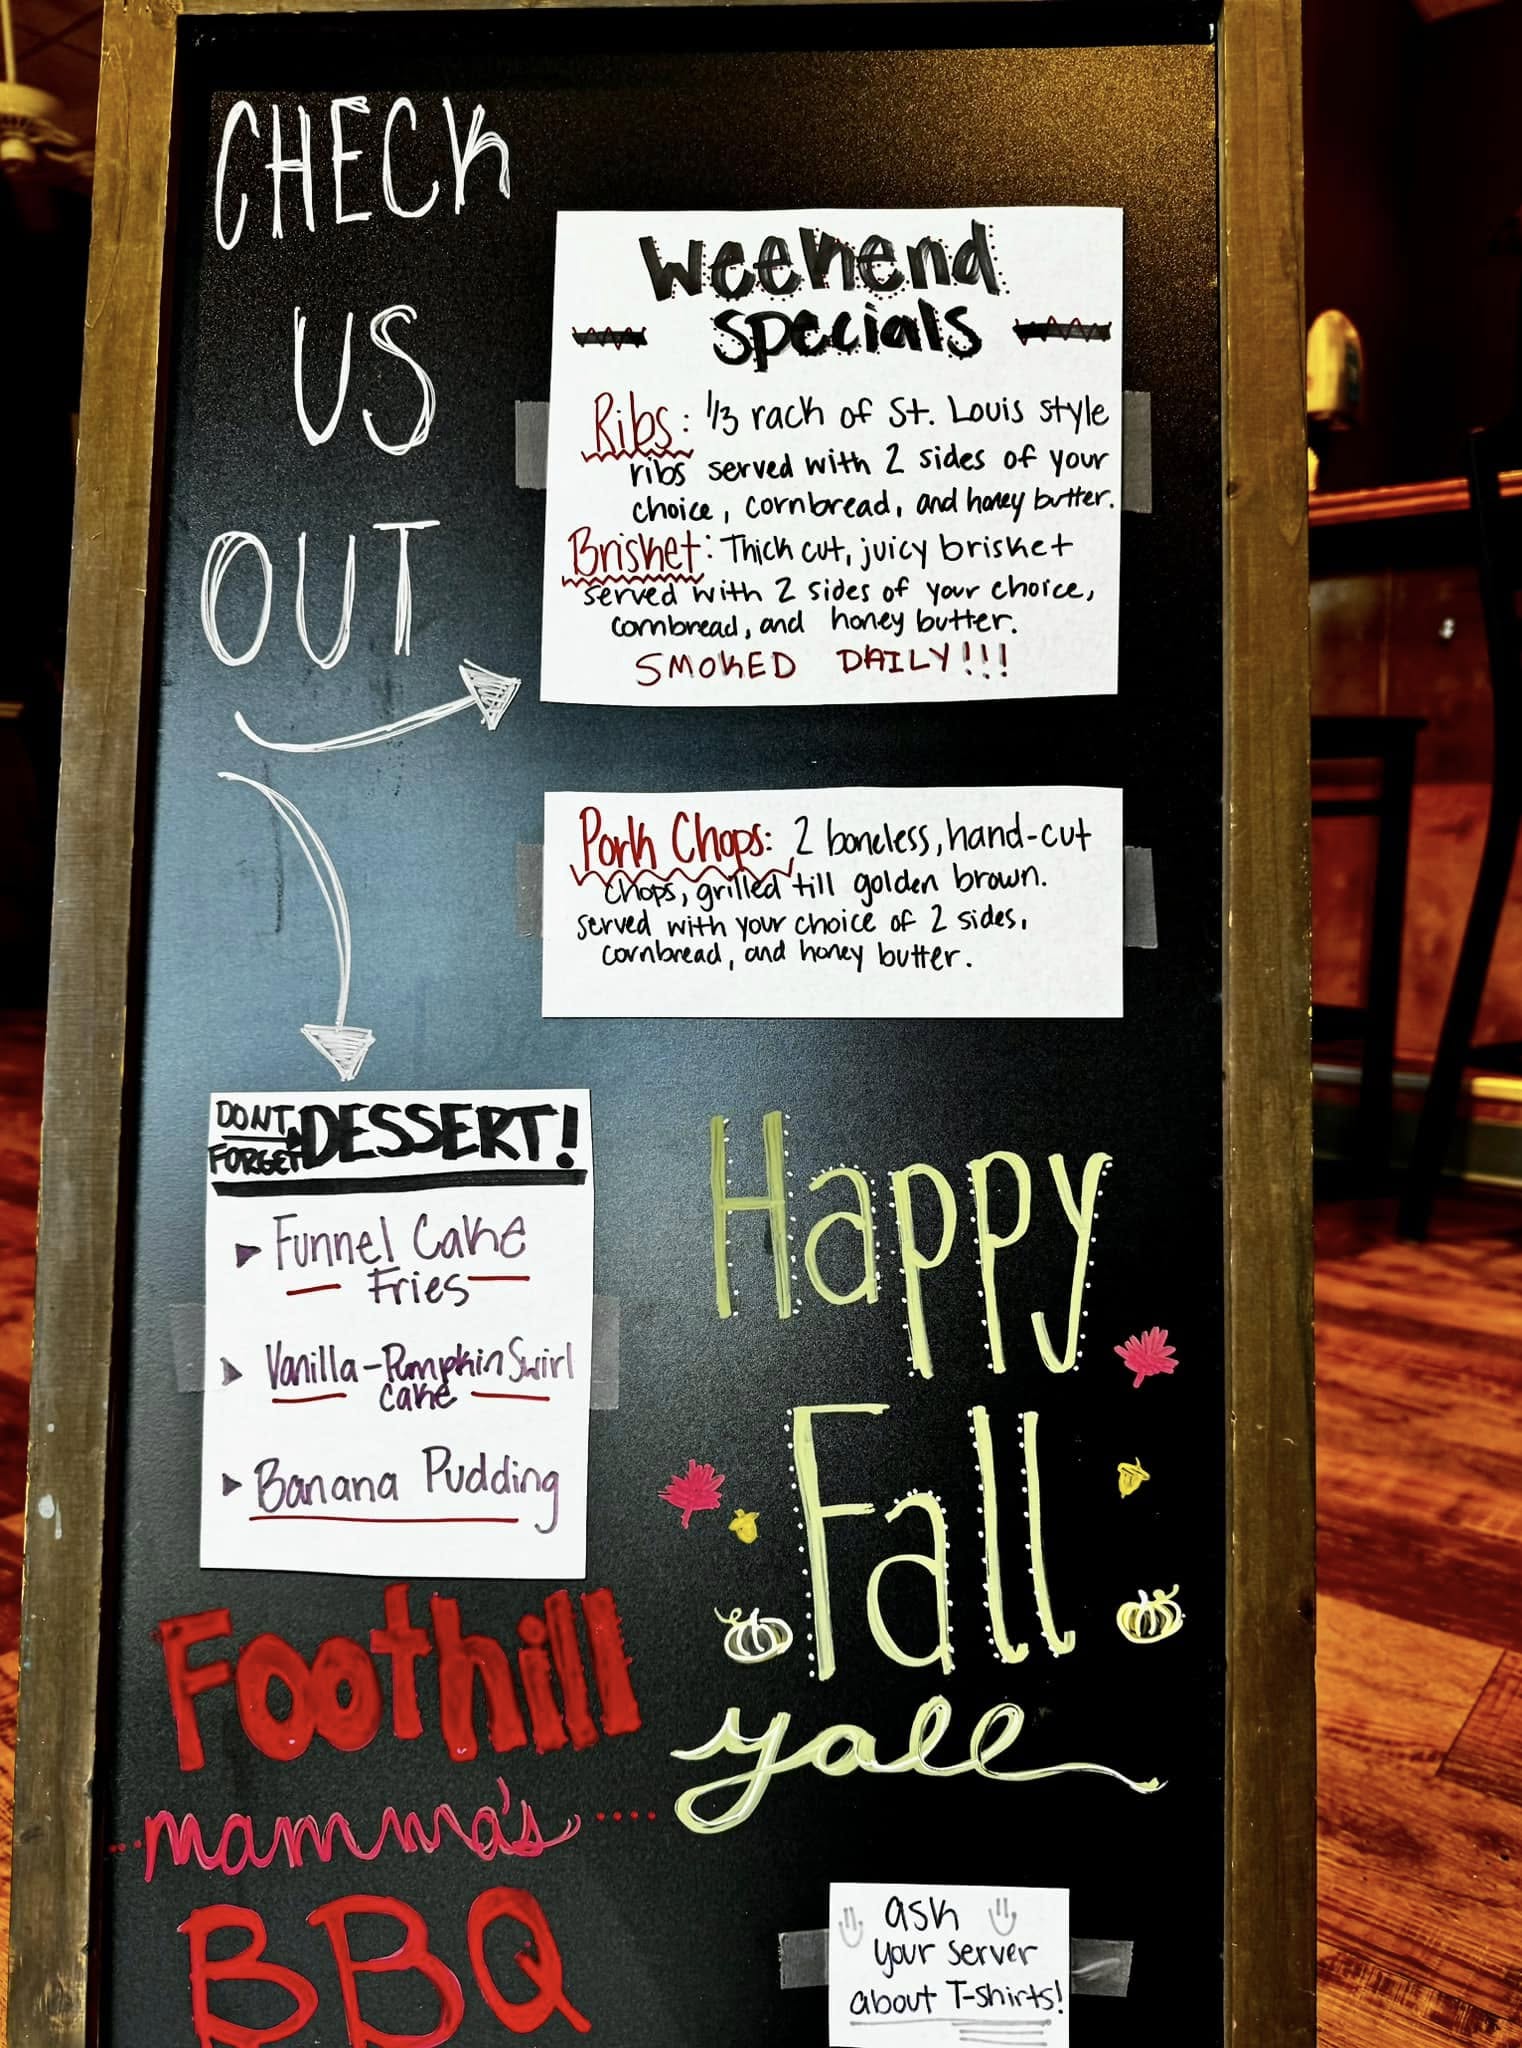 CHECK
US
OUT
Weekend
specials
Ribs: 1/3 rack of St. Louis style
ribs served with 2 sides of your
choice, cornbread, and honey butter.
Brisket: Thick cut, juicy brisket
served with 2 sides of your choice,
cornbread, and honey butter.
SMOKED DAILY!!!
Pork Chops: 2 boneless, hand-cut
chops, grilled till golden brown.
served with your choice of 2 sides,
cornbread, and honey butter.
DONT
FORGET DESSERT!
Funnel Cake
Fries
Vanilla-Pumpkin Swirl
cake
Banana Pudding
Happy
Fall
yall
Foothill
mamma's
BBQ
ask
your server
about T-shirts!